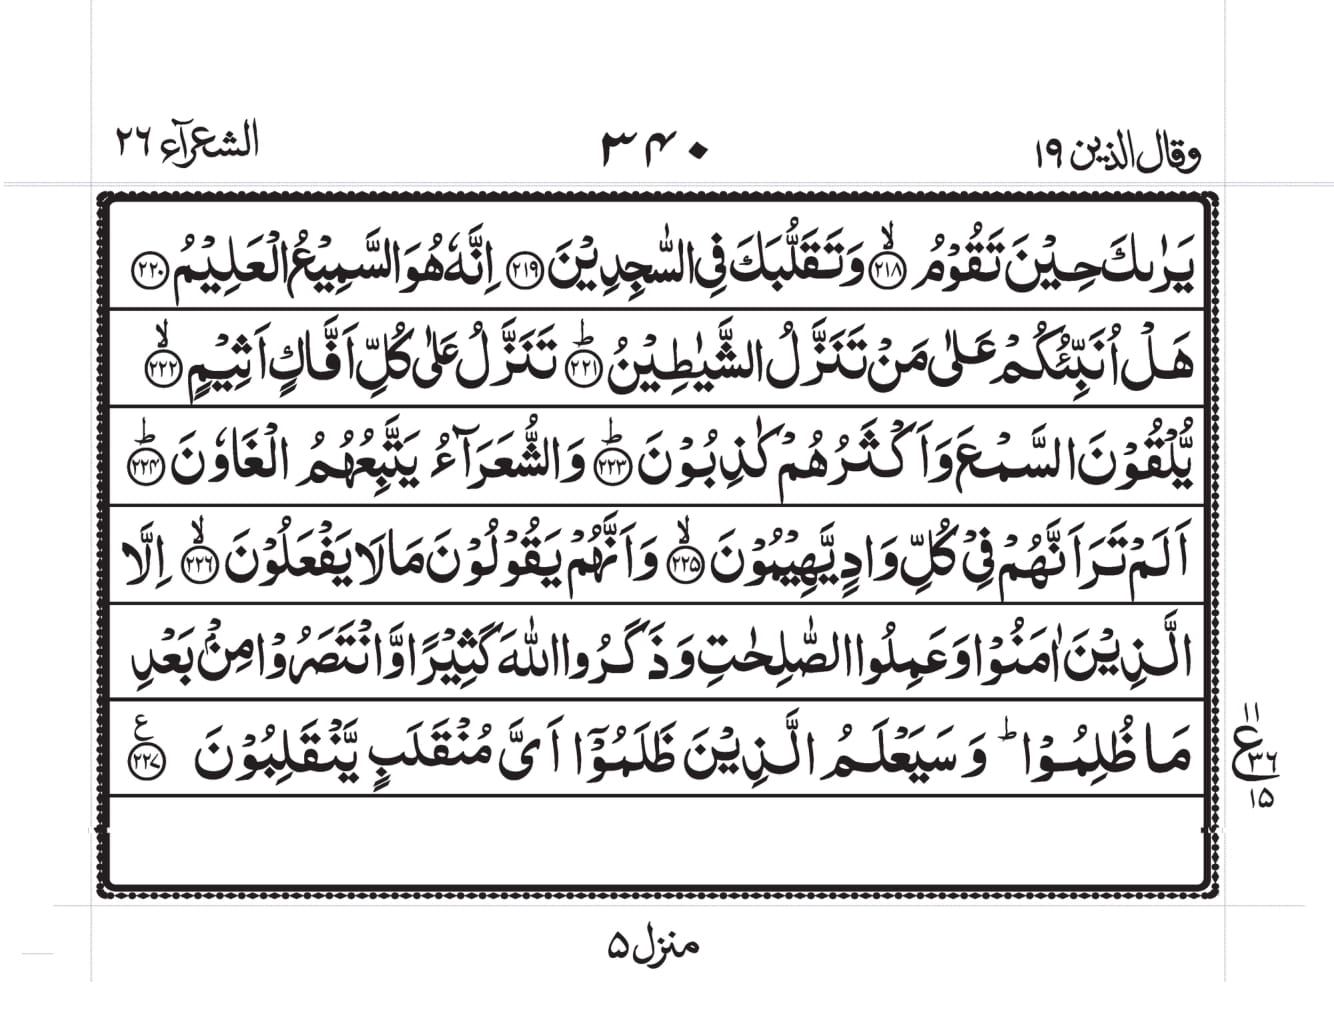 وقال الذين ١٩ ٣٤٠ الشعرآء ٢٦
يَرٰىكَ حِيْنَ تَقُوْمُ ۙ‏﴿۲۱۸﴾ وَتَقَلُّبَكَ فِى السّٰجِدِيْنَ ﴿۲۱۹﴾ اِنَّهٗ هُوَ السَّمِيْعُ الْعَلِيْمُ ﴿۲۲۰﴾
هَلْ اُنَبِّئُكُمْ عَلٰى مَنْ تَنَزَّلُ الشَّيٰطِيْنُ ؕ‏﴿۲۲۱﴾ تَنَزَّلُ عَلٰى كُلِّ اَفَّاكٍ اَثِيْمٍ ۙ‏﴿۲۲۲﴾
يُّلْقُوْنَ السَّمْعَ وَاَكْثَرُهُمْ كٰذِبُوْنَ ؕ‏﴿۲۲۳﴾ وَالشُّعَرَآءُ يَتَّبِعُهُمُ الْغَاوٗنَ ؕ‏﴿۲۲۴﴾
اَلَمْ تَرَ اَنَّهُمْ فِىْ كُلِّ وَادٍ يَّهِيْمُوْنَ ۙ‏﴿۲۲۵﴾ وَاَنَّهُمْ يَقُوْلُوْنَ مَا لَا يَفْعَلُوْنَ ۙ‏﴿۲۲۶﴾ اِلَّا
الَّذِيْنَ اٰمَنُوْا وَعَمِلُوا الصّٰلِحٰتِ وَذَكَرُوا اللّٰهَ كَثِيْرًا وَّانْتَصَرُوْا مِنْۢ بَعْدِ
مَا ظُلِمُوْا ؕ وَسَيَعْلَمُ الَّذِيْنَ ظَلَمُوْۤا اَىَّ مُنْقَلَبٍ يَّنْقَلِبُوْنَ ﴿۲۲۷﴾ ع
١١
ع ٣٦
١٥
منزل ۵